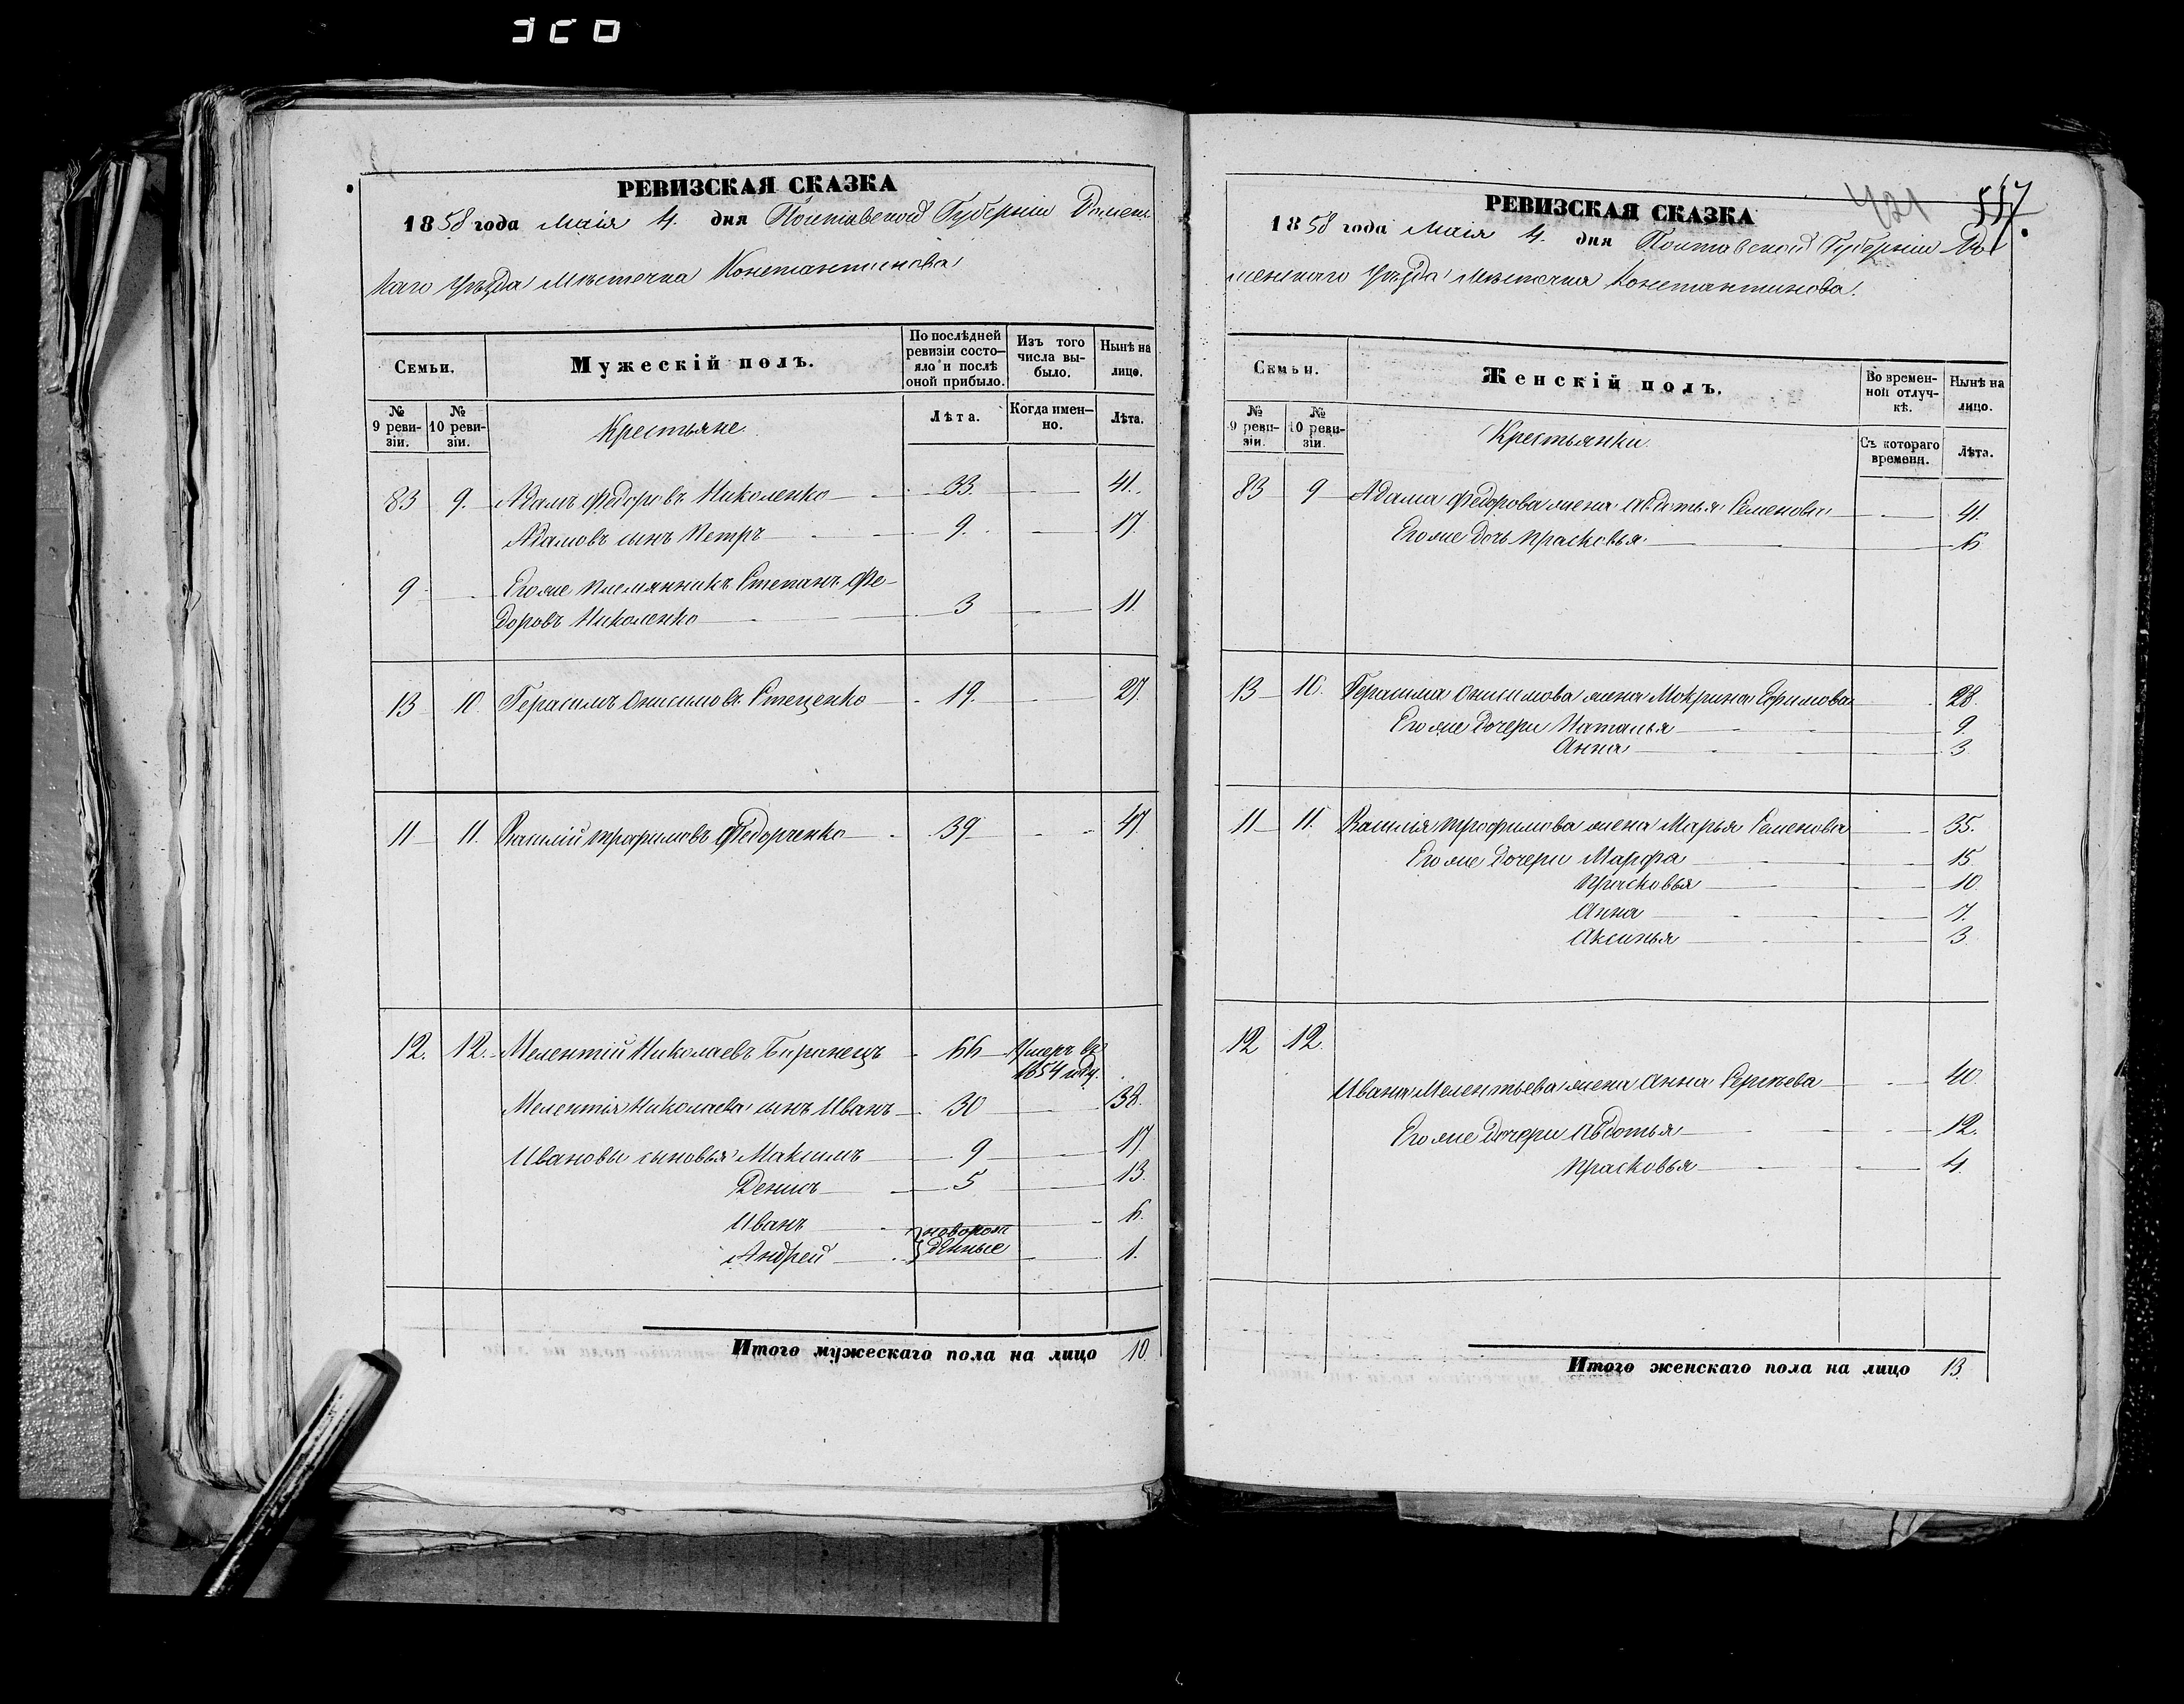 РЕВИЗСКАЯ СКАЗКА
1858 года Маія 4. дня Полтавской Губерніи Ромен
скаго Уѣзда Мѣстечка Константинова
Семьи.
Мужескій полъ.
По послѣдней ревизіи состояло и послѣ оной прибыло.
Изъ того числа выбыло.
Нынѣ на лицо.
№ 9 ревизіи.
№ 10 ревизіи.
Крестьяне
Лѣта.
Когда именно.
Лѣта.
83 9. Адамъ Федоровъ Николенко 33. 41.
Адамовъ сынъ Петръ 9. 17
9 Егоже племянникъ Степанъ Фе-
доровъ Николенко 3 11
13 10 Герасимъ Онисимовъ Стеценко 19. 27
11 11. Василій Трофимовъ Федорченко 39 47
12. 12. Мелентій Николаевъ Биринецъ 66 Умеръ въ
1854 году.
Мелентія Николаева сынъ Иванъ 30 38.
Ивановы сыновья Максимъ 9 17
Денисъ 5 13.
Иванъ новорож 6.
Андрей денные 1.
Итого мужескаго пола на лицо 10.
421
517
РЕВИЗСКАЯ СКАЗКА
1858 года Маія 4. дня Полтавской Губерніи Ро
менскаго Уѣзда Мѣстечка Константинова.
Семьи.
Женскій полъ.
Во временной отлучкѣ.
Нынѣ на лицо.
№ 9 ревизіи.
№ 10 ревизіи.
Крестьянки
Съ котораго времени.
Лѣта.
83 9 Адама Федорова жена Авдотья Семенова 41.
Егоже дочь Прасковья 6
13 10. Герасима Онисимова жена Мокрина Ефимова 28.
Егоже дочери Наталья 9.
Анна 3
11 11. Василія Трофимова жена Марья Семенова 35.
Егоже дочери Марфа 15
Прасковья 10
Анна 7.
Аксинья 3
12 12.
Ивана Мелентьева жена Анна Сергѣева 40
Егоже дочери Авдотья 12.
Прасковья 4.
Итого женскаго пола на лицо 13.